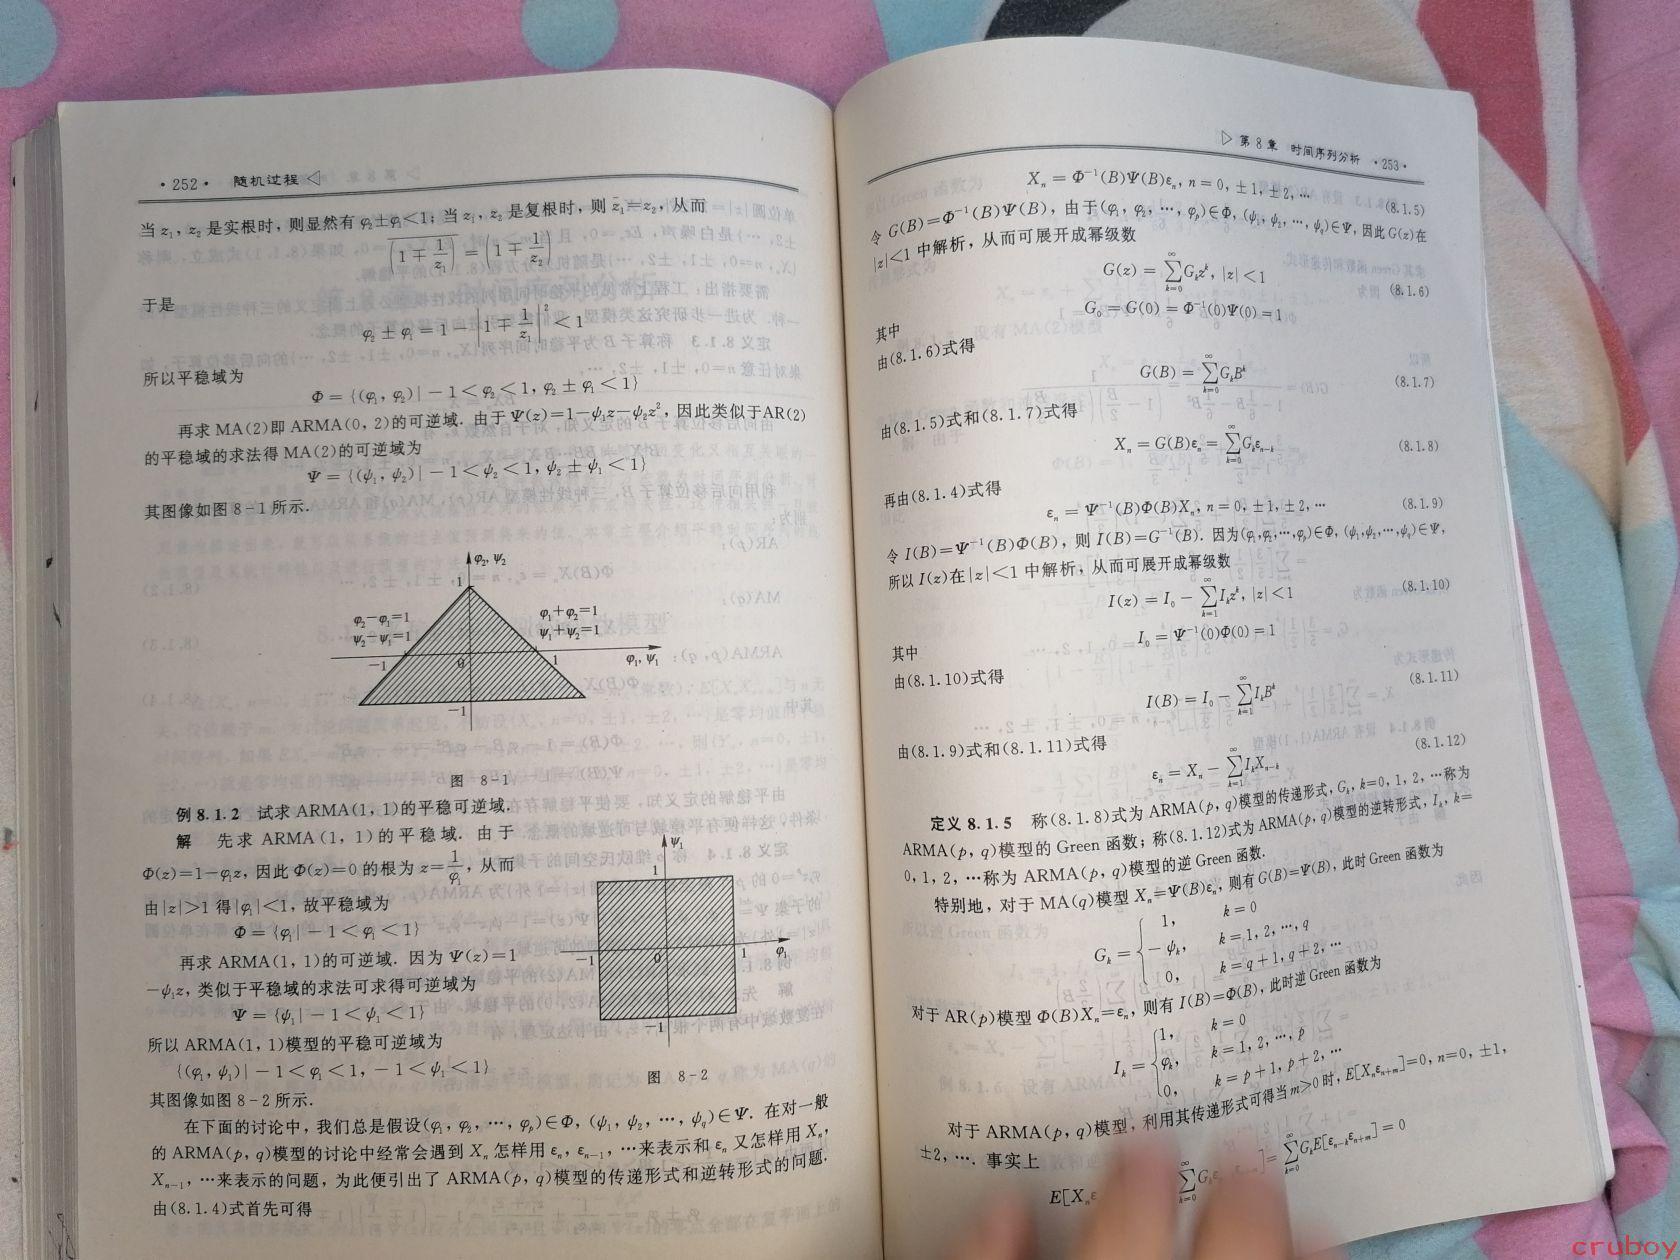 ·252· 随机过程 ◁
当 z₁, z₂ 是实根时, 则显然有 φ₂±φ₁<1; 当 z₁, z₂ 是复根时, 则 z̄₁=z₂, 从而
\overline{(1∓1/z₁)} = (1∓1/z₂)
于是
φ₂±φ₁=1−|1∓1/z₁|²<1
所以平稳域为
Φ={(φ₁, φ₂)|−1<φ₂<1, φ₂±φ₁<1}
再求 MA(2)即 ARMA(0, 2)的可逆域. 由于 Ψ(z)=1−ψ₁z−ψ₂z², 因此类似于AR(2)
的平稳域的求法得 MA(2)的可逆域为
Ψ={(ψ₁, ψ₂)|−1<ψ₂<1, ψ₂±ψ₁<1}
其图像如图 8-1 所示.
φ₂, ψ₂
1
φ₂−φ₁=1
ψ₂−ψ₁=1
φ₁+φ₂=1
ψ₁+ψ₂=1
−1 0 1 φ₁, ψ₁
−1
图 8-1
例 8.1.2 试求 ARMA(1, 1)的平稳可逆域.
解 先求 ARMA(1, 1)的平稳域. 由于
Φ(z)=1−φ₁z, 因此 Φ(z)=0 的根为 z=1/φ₁, 从而
由|z|>1 得|φ₁|<1, 故平稳域为
Φ={φ₁|−1<φ₁<1}
再求 ARMA(1, 1)的可逆域. 因为 Ψ(z)=1
−ψ₁z, 类似于平稳域的求法可求得可逆域为
Ψ={ψ₁|−1<ψ₁<1}
所以 ARMA(1, 1)模型的平稳可逆域为
{(φ₁, ψ₁)|−1<φ₁<1, −1<ψ₁<1}
其图像如图 8-2 所示.
ψ₁
1
−1 0 1 φ₁
−1
图 8-2
在下面的讨论中, 我们总是假设(φ₁, φ₂, …, φₚ)∈Φ, (ψ₁, ψ₂, …, ψ_q)∈Ψ. 在对一般
的 ARMA(p, q)模型的讨论中经常会遇到 Xₙ 怎样用 εₙ, εₙ₋₁, …来表示和 εₙ 又怎样用 Xₙ,
Xₙ₋₁, …来表示的问题, 为此便引出了 ARMA(p, q)模型的传递形式和逆转形式的问题.
由(8.1.4)式首先可得
▷ 第 8 章 时间序列分析 ·253·
Xₙ=Φ⁻¹(B)Ψ(B)εₙ, n=0, ±1, ±2, … (8.1.5)
令 G(B)=Φ⁻¹(B)Ψ(B), 由于(φ₁, φ₂, …, φₚ)∈Φ, (ψ₁, ψ₂, …, ψ_q)∈Ψ, 因此 G(z)在
|z|<1 中解析, 从而可展开成幂级数
G(z)=∑_{k=0}^{∞}G_k z^k, |z|<1 (8.1.6)
其中
G₀=G(0)=Φ⁻¹(0)Ψ(0)=1
由(8.1.6)式得
G(B)=∑_{k=0}^{∞}G_k B^k (8.1.7)
由(8.1.5)式和(8.1.7)式得
Xₙ=G(B)εₙ=∑_{k=0}^{∞}G_k ε_{n−k} (8.1.8)
再由(8.1.4)式得
εₙ=Ψ⁻¹(B)Φ(B)Xₙ, n=0, ±1, ±2, … (8.1.9)
令 I(B)=Ψ⁻¹(B)Φ(B), 则 I(B)=G⁻¹(B). 因为(φ₁,φ₂,…,φₚ)∈Φ, (ψ₁,ψ₂,…,ψ_q)∈Ψ,
所以 I(z)在|z|<1 中解析, 从而可展开成幂级数
I(z)=I₀−∑_{k=1}^{∞}I_k z^k, |z|<1 (8.1.10)
其中
I₀=Ψ⁻¹(0)Φ(0)=1
由(8.1.10)式得
I(B)=I₀−∑_{k=1}^{∞}I_k B^k (8.1.11)
由(8.1.9)式和(8.1.11)式得
εₙ=Xₙ−∑_{k=1}^{∞}I_k X_{n−k} (8.1.12)
定义 8.1.5 称(8.1.8)式为 ARMA(p, q)模型的传递形式, G_k, k=0, 1, 2, …称为
ARMA(p, q)模型的 Green 函数; 称(8.1.12)式为 ARMA(p, q)模型的逆转形式, I_k, k=
0, 1, 2, …称为 ARMA(p, q)模型的逆 Green 函数.
特别地, 对于 MA(q)模型 Xₙ=Ψ(B)εₙ, 则有 G(B)=Ψ(B), 此时 Green 函数为
G_k={ 1, k=0
−ψ_k, k=1, 2, …, q
0, k=q+1, q+2, …
对于 AR(p)模型 Φ(B)Xₙ=εₙ, 则有 I(B)=Φ(B), 此时逆 Green 函数为
I_k={ 1, k=0
φ_k, k=1, 2, …, p
0, k=p+1, p+2, …
对于 ARMA(p, q)模型, 利用其传递形式可得当 m>0 时, E[Xₙε_{n+m}]=0, n=0, ±1,
±2, …. 事实上
E[Xₙε ∑_{k=0}^{∞}G_k ]=∑_{k=0}^{∞}G_k E[ε_{n−k}ε_{n+m}]=0
cruboy